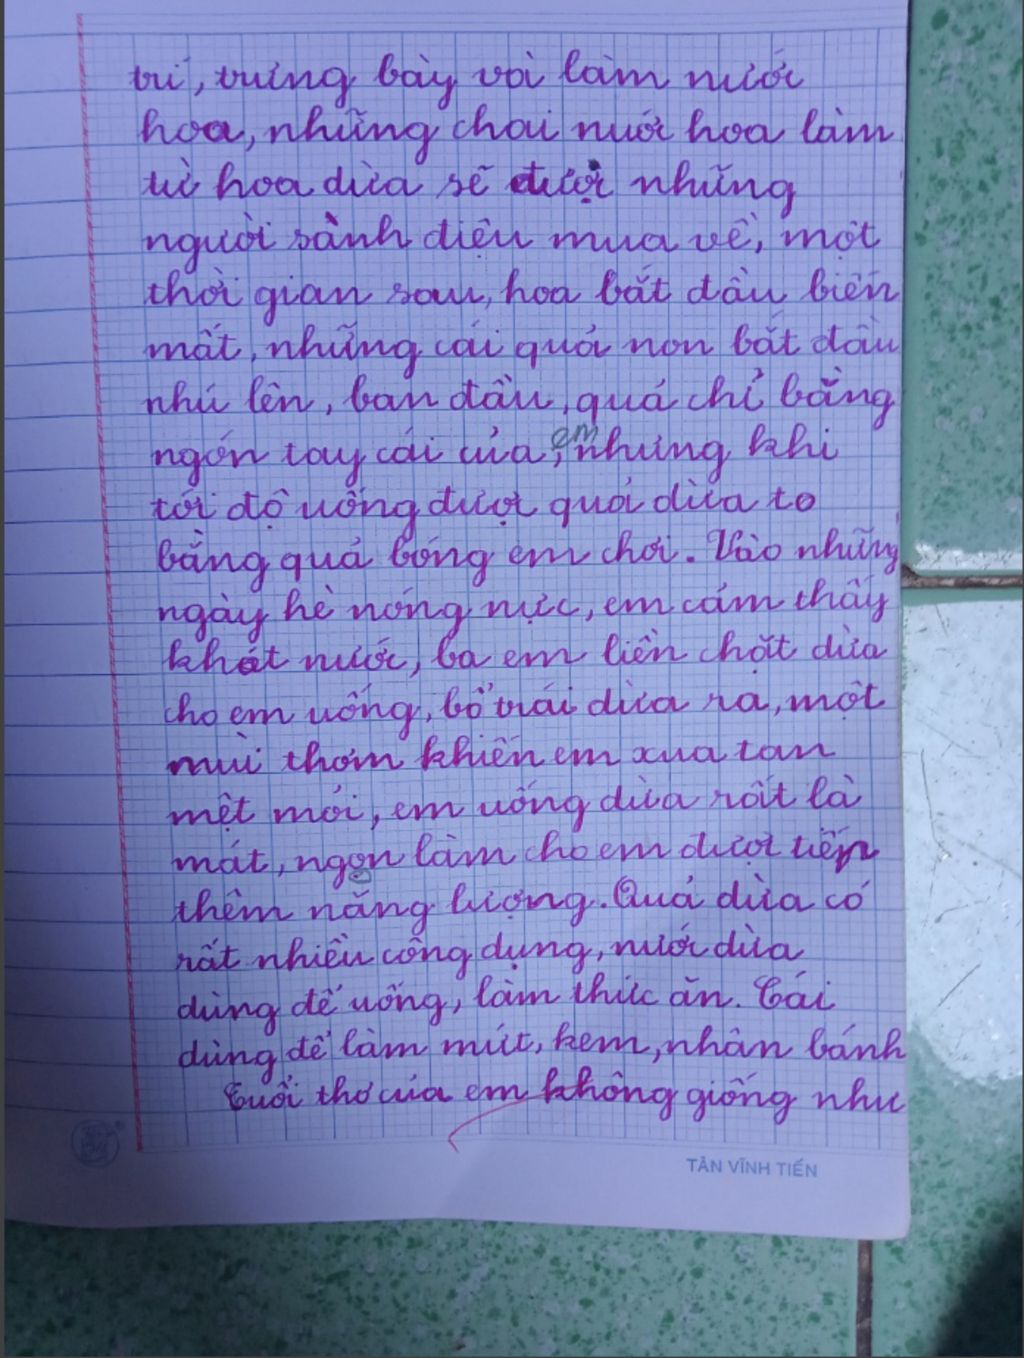 trí, trưng bày và làm nước
hoa, những chai nước hoa làm
từ hoa dừa sẽ được những
người sành điệu mua về, một
thời gian sau, hoa bắt đầu biến
mất, những cái quả non bắt đầu
nhú lên, ban đầu, quả chỉ bằng
ngón tay cái của em, nhưng khi
tới độ uống được quả dừa to
bằng quả bóng em chơi. Vào những
ngày hè nóng nực, em cảm thấy
khát nước, ba em liền chặt dừa
cho em uống, bổ trái dừa ra, một
mùi thơm khiến em xua tan
mệt mỏi, em uống dừa rất là
mát, ngon làm cho em được tiếp
thêm năng lượng. Quả dừa có
rất nhiều công dụng, nước dừa
dùng để uống, làm thức ăn. Cái
dùng để làm mứt, kem, nhân bánh
Tuổi thơ của em không giống như
TÂN VĨNH TIẾN